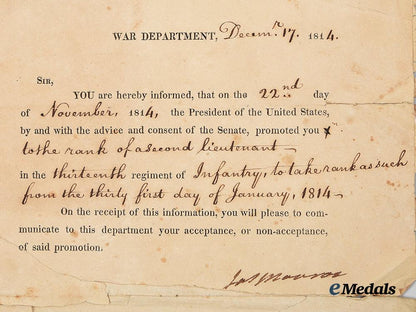 WAR DEPARTMENT, Decemr. 17. 1814.
SIR,
YOU are hereby informed, that on the 22nd day
of November, 1814, the President of the United States,
by and with the advice and consent of the Senate, promoted you
to the rank of a second lieutenant
in the thirteenth regiment of Infantry, to take rank as such
from the thirty first day of January, 1814
On the receipt of this information, you will please to com-
municate to this department your acceptance, or non-acceptance,
of said promotion.
Jas Monroe
eMedals